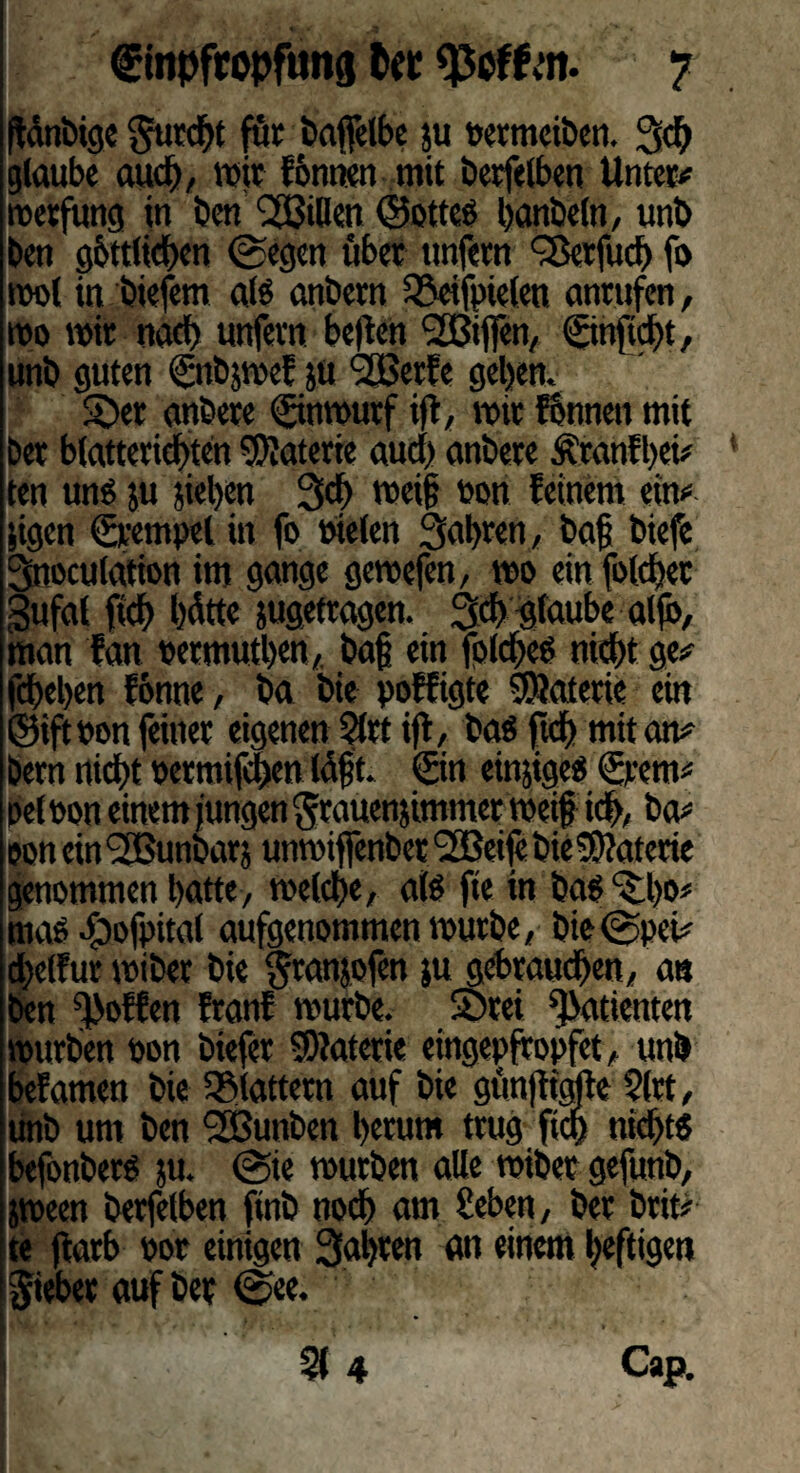 Einpfropfung der Pokken. 7
ständige Furcht für dasselbe zu vermeiden. Ich
glaube auch, wir können mit derselben Unter⸗
werfung in den Willen Gottes handeln, und
den göttlichen Segen über unsern Versuch so
wol in diesem als andern Beispielen anrufen,
wo wir nach unsern besten Wissen, Einsicht,
und guten Endzwek zu Werke gehen.
Der andere Einwurf ist, wir können mit
der blatterichten Materie auch andere Krankhei⸗
ten uns zu ziehen Ich weiß von keinem ein⸗
zigen Exempel in so vielen Jahren, daß diese
Inoculation im gange gewesen, wo ein solcher
Zufal sich hätte zugetragen. Ich glaube also,
man kan vermuthen, daß ein solches nicht ge⸗
schehen könne, da die pokkigte Materie ein
Gift von seiner eigenen Art ist, das sich mit an⸗
dern nicht vermischen läßt. Ein einziges Exem⸗
pel von einem jungen Frauenzimmer weiß ich, da⸗
von ein Wundarz unwissender Weise die Materie
genommen hatte, welche, als sie in das Tho⸗
mas Hospital aufgenommen wurde, die Spei⸗
chelkur wider die Franzosen zu gebrauchen, an
den Pokken krank wurde. Drei Patienten
wurden von dieser Materie eingepfropfet, und
bekamen die Blattern auf die günstigste Art,
und um den Wunden herum trug sich nichts
besonders zu. Sie wurden alle wider gesund,
zween derselben sind noch am Leben, der drit⸗
te starb vor einigen Jahren an einem heftigen
Fieber auf der See.
A 4 Cap.